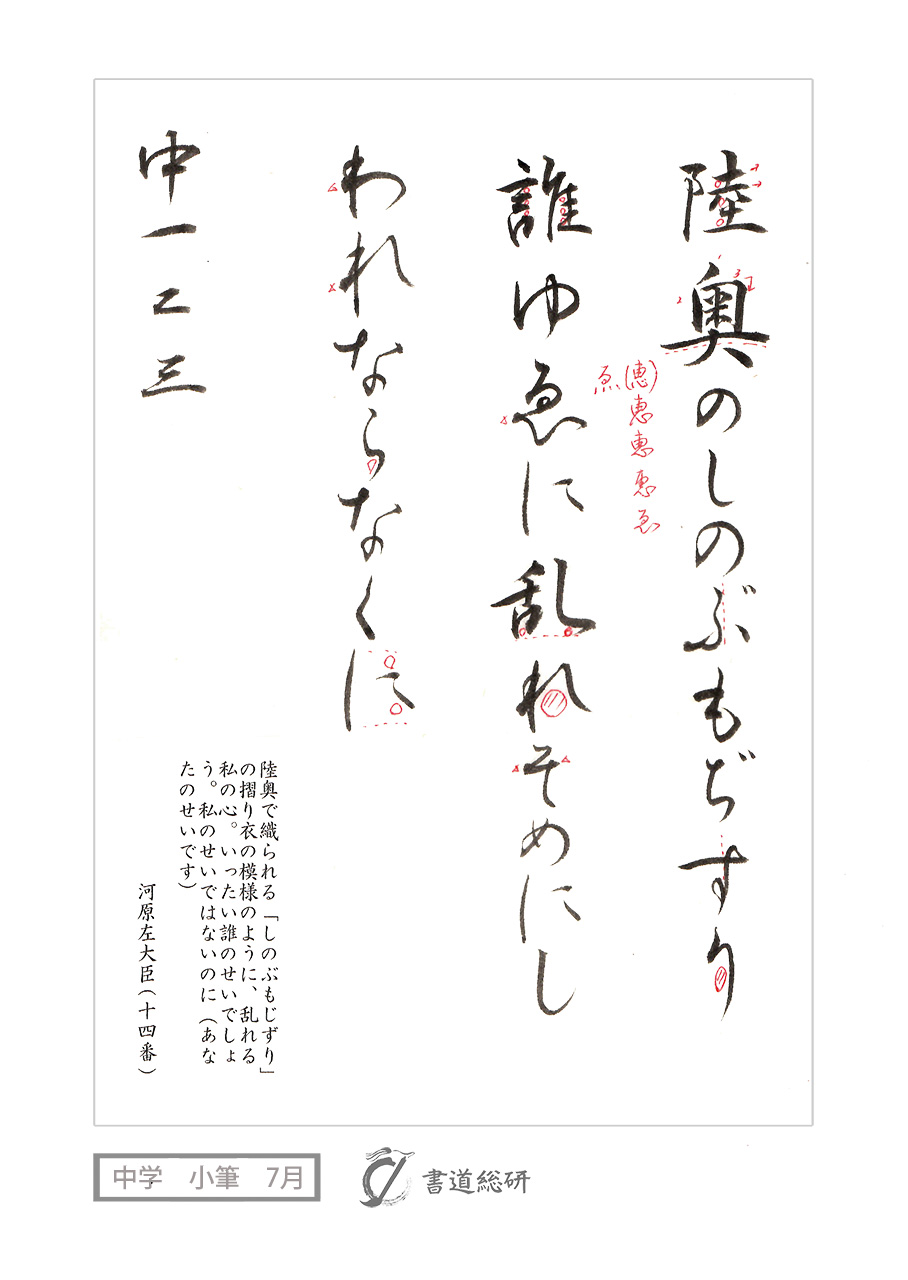 陸奥のしのぶもぢすり
(恵)恵恵恵ゑ
ゑ
誰ゆゑに乱れそめにし
われならなくに
中一二三
陸奥で織られる「しのぶもじずり」
の摺り衣の模様のように、乱れる
私の心。いったい誰のせいでしょ
う。私のせいではないのに(あな
たのせいです)
河原左大臣(十四番)
中学 小筆 7月
書道総研